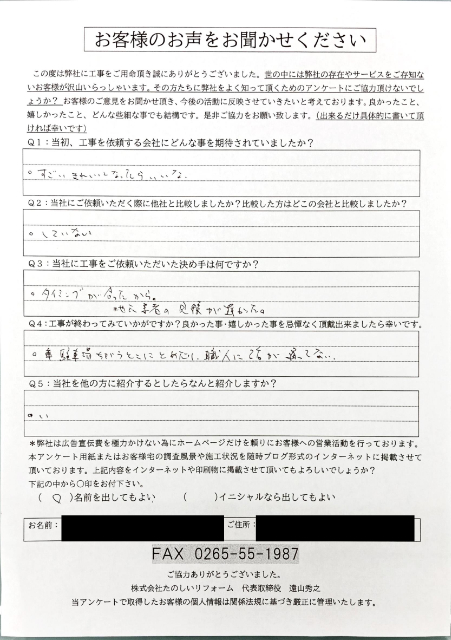 お客様のお声をお聞かせください
この度は弊社に工事をご用命頂き誠にありがとうございました。世の中には弊社の存在やサービスをご存知な
いお客様が沢山いらっしゃいます。その方たちに弊社をよく知って頂くためのアンケートにご協力頂けないでし
ょうか？お客様のご意見をお聞かせ頂き、今後の活動に反映させていきたいと考えております。良かったこと、
嬉しかったこと、どんな些細な事でも結構です。是非ご協力をお願い致します。（出来るだけ具体的に書いて頂
ければ幸いです）
Q1：当初、工事を依頼する会社にどんな事を期待されていましたか？
。すごい きれいになったらいいな
Q2：当社にご依頼いただく際に他社と比較しましたか？比較した方はどこの会社と比較しましたか？
。していない
Q3：当社に工事をご依頼いただいた決め手は何ですか？
。タイミングが合ったから。
地元業者の見積が遅かった。
Q4：工事が終わってみていかがですか？良かった事・嬉しかった事を忌憚なく頂戴出来ましたら幸いです。
。車 駐車場 ちがうとこにとめたい、職人に話が通ってない。
Q5：当社を他の方に紹介するとしたらなんと紹介しますか？
＊弊社は広告宣伝費を極力かけない為にホームページだけを頼りにお客様への営業活動を行っております。
本アンケート用紙またはお客様宅の調査風景や施工状況を随時ブログ形式のインターネットに掲載させて
頂いております。上記内容をインターネットや印刷物に掲載させて頂いてもよろしいでしょうか？
下記の中から〇印をお付下さい。
（ ○ ）名前を出してもよい （ ）イニシャルなら出してもよい
お名前： ご住所：
FAX 0265-55-1987
ご協力ありがとうございました。
株式会社たのしいリフォーム 代表取締役 遠山秀之
当アンケートで取得したお客様の個人情報は関係法規に基づき厳正に管理いたします。